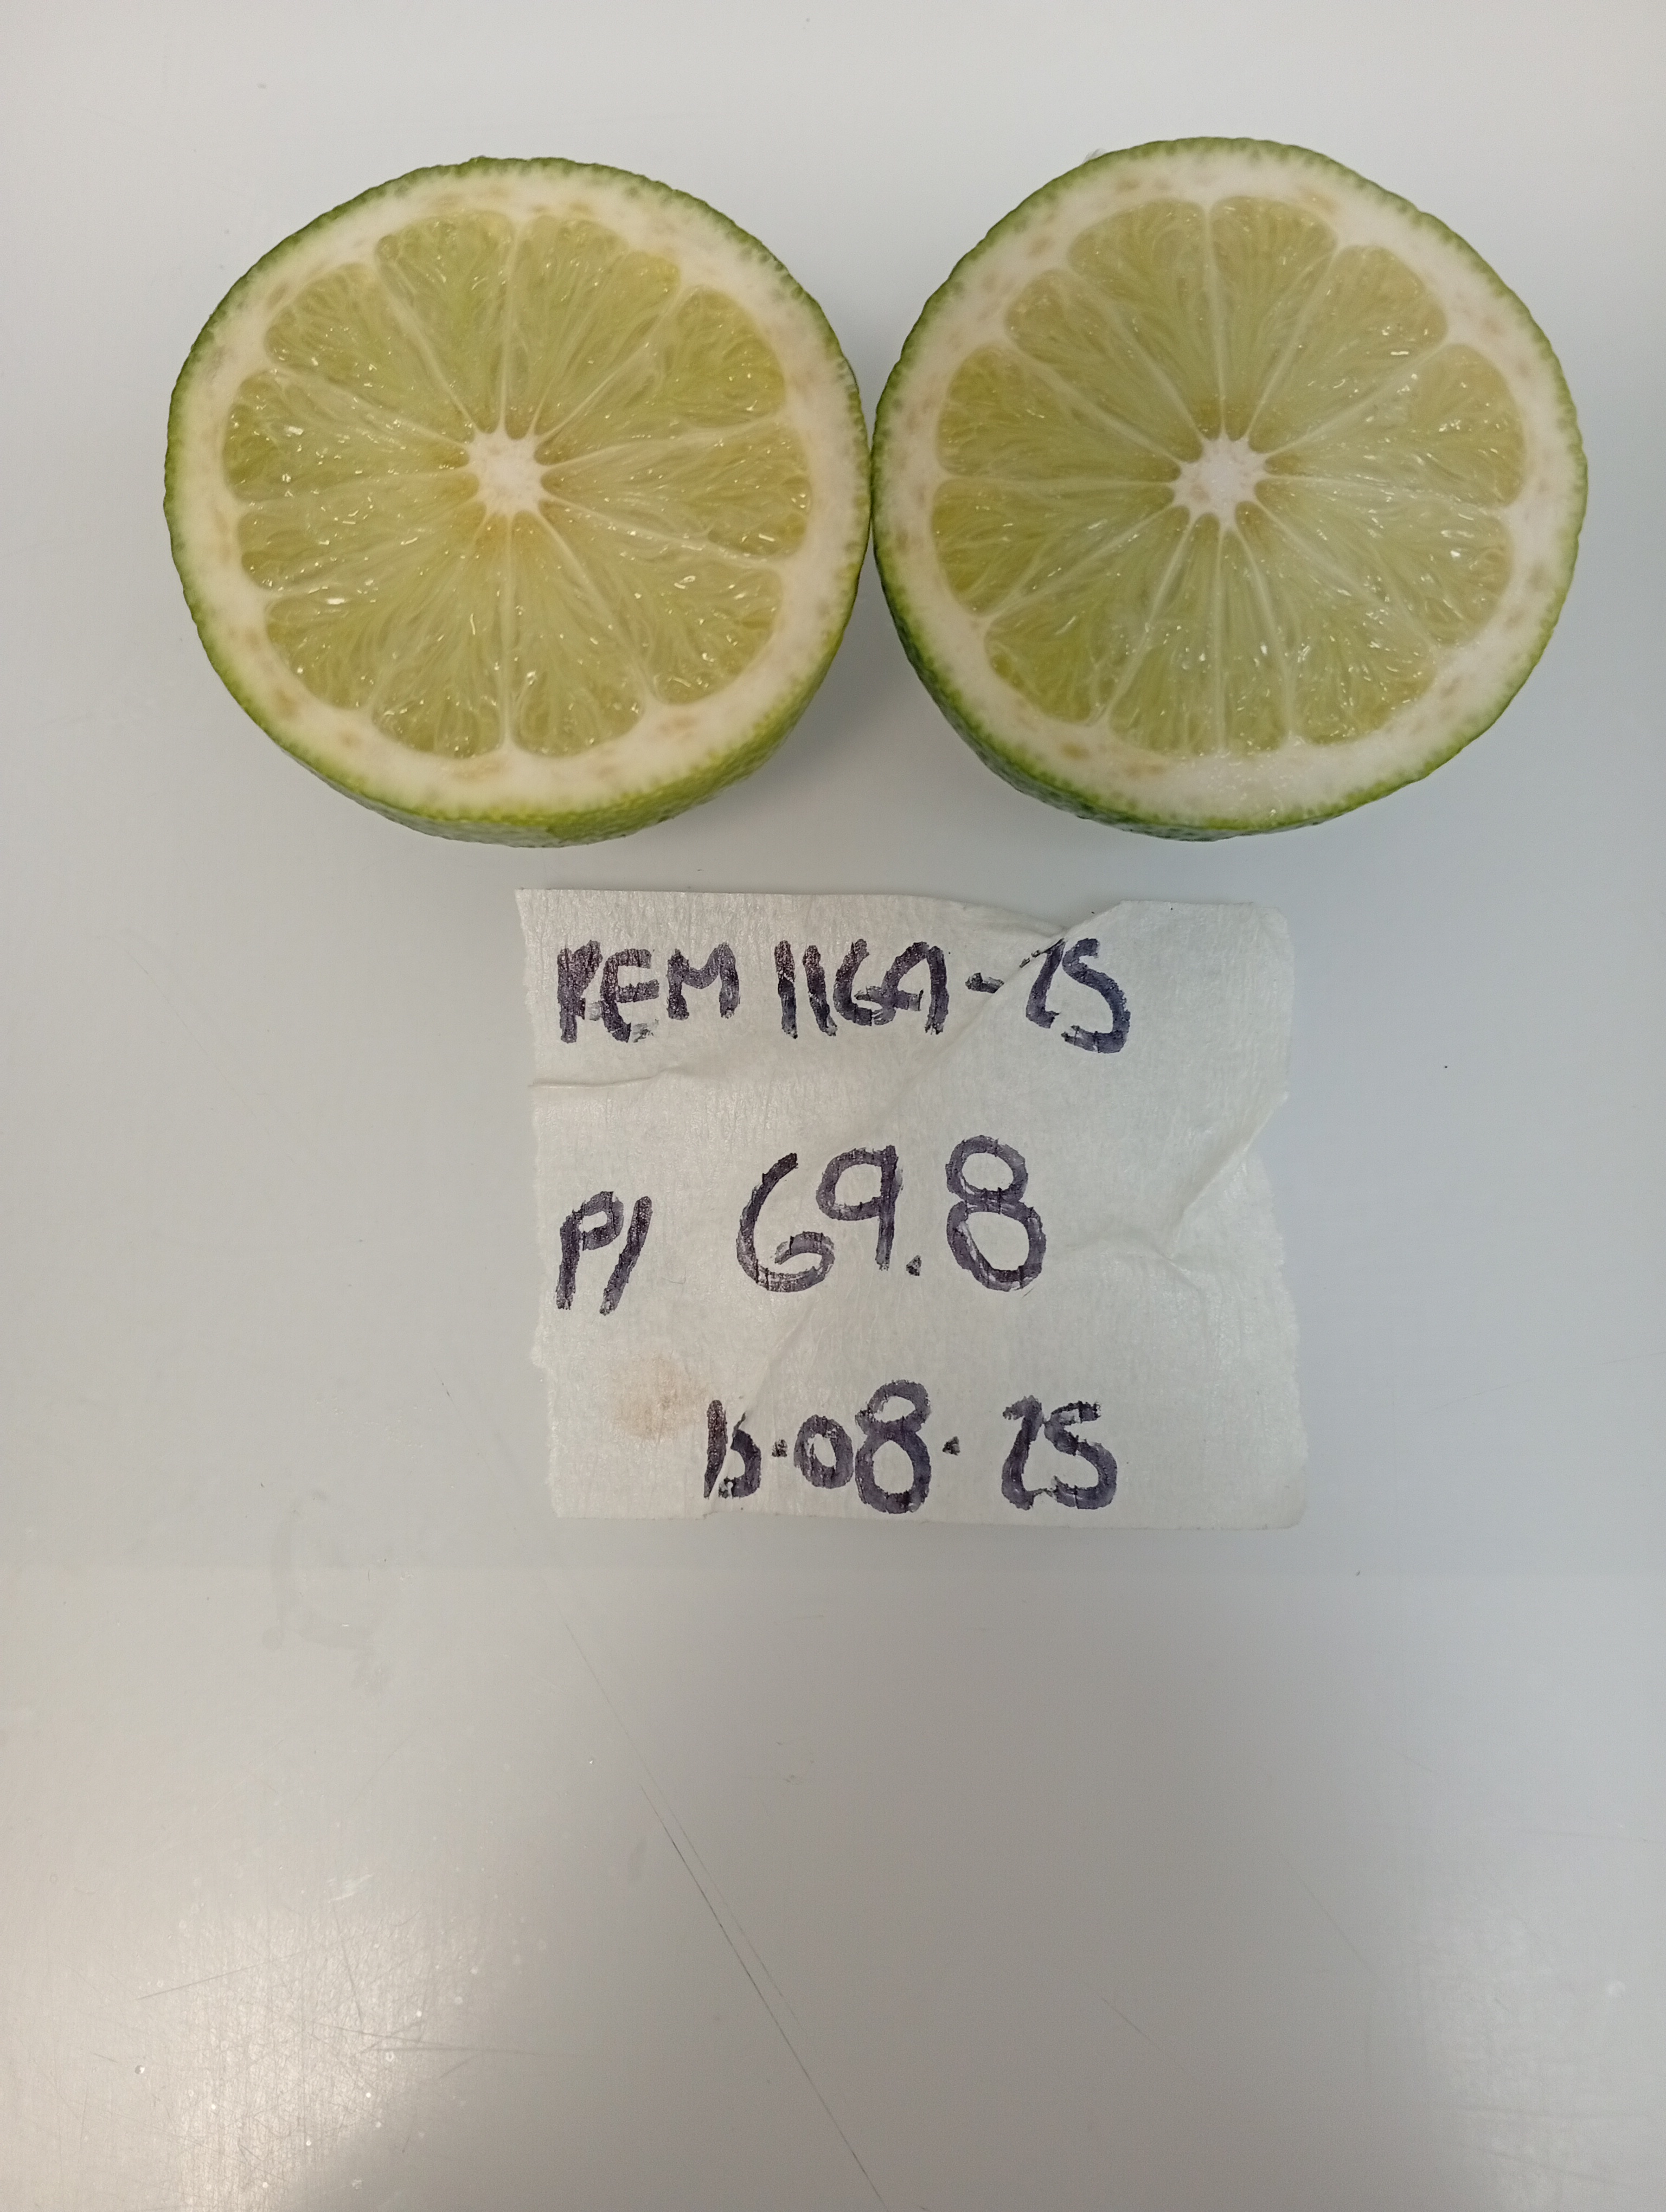 REM 1169-25
P/ 69.8
15.08.25